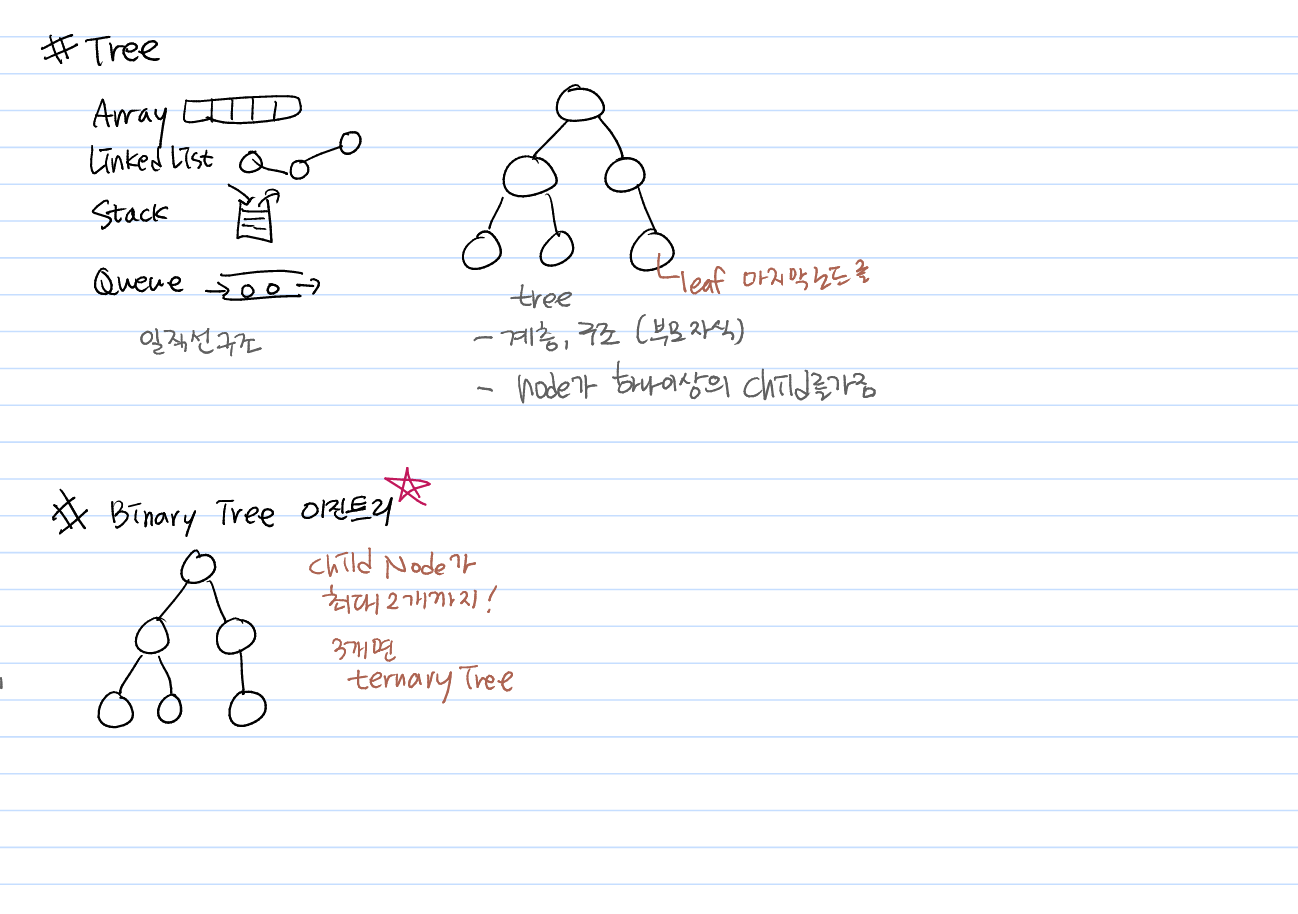 # Tree
Array
Linked List
Stack
Queue
일직선구조
leaf 마지막노드를
tree
- 계층, 구조 (부모자식)
- node가 하나이상의 child를가짐
# Binary Tree 이진트리
child Node가
최대 2개까지!
3개면
ternary Tree